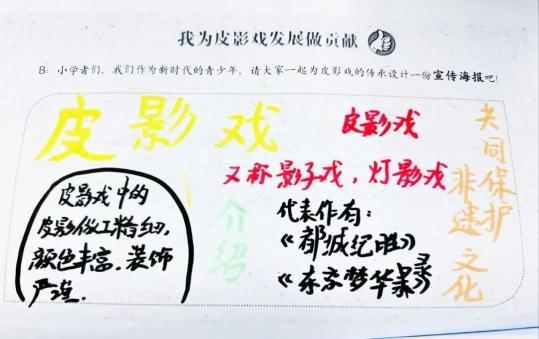 我为皮影戏发展做贡献
B：小学者们，我们作为新时代的青少年，请大家一起为皮影戏的传承设计一份宣传海报吧！
皮影戏
皮影戏
又称影子戏，灯影戏
皮影戏中的
皮影做工精细，
颜色丰富，装饰
严谨.
介绍
代表作有：
《都城纪胜》
《东京梦华录》
共同保护
非遗文化